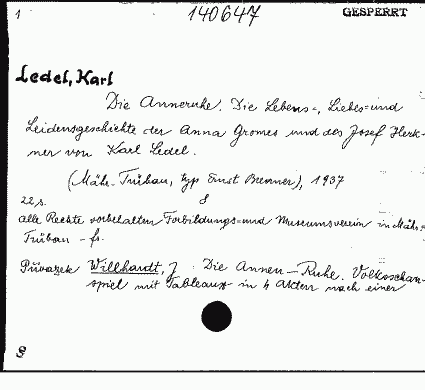 1 140647 GESPERRT
Ledel, Karl
Die Anneruhe. Die Lebens-, Liebes- und
Leidensgeschichte der Anna Gromes und des Josef Herk-
ner von Karl Ledel.
(Mähr. Trübau, typ Ernst Brenner), 1937
22 s. 8
alle Rechte vorbehalten Fortbildungs- und Museumsverein in Mähr.-
Trübau - fs.
Přívazek Willhardt, J Die Annen-Ruhe. Volksschau-
spiel mit Tableaux in 4 Akten nach einer
§